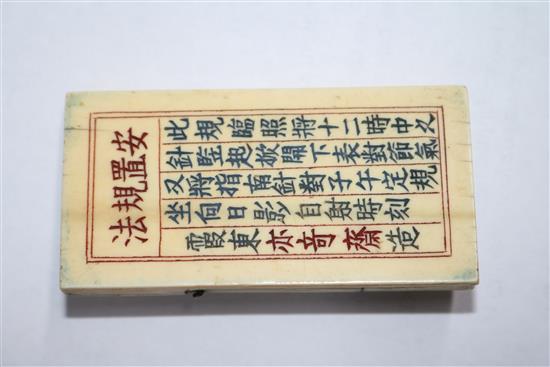 安置規法
此規臨照將十二時中之
針竪起掀開下表對節氣
又將指南針對子午定規
坐向日影自射時刻
霞東亦奇齋造